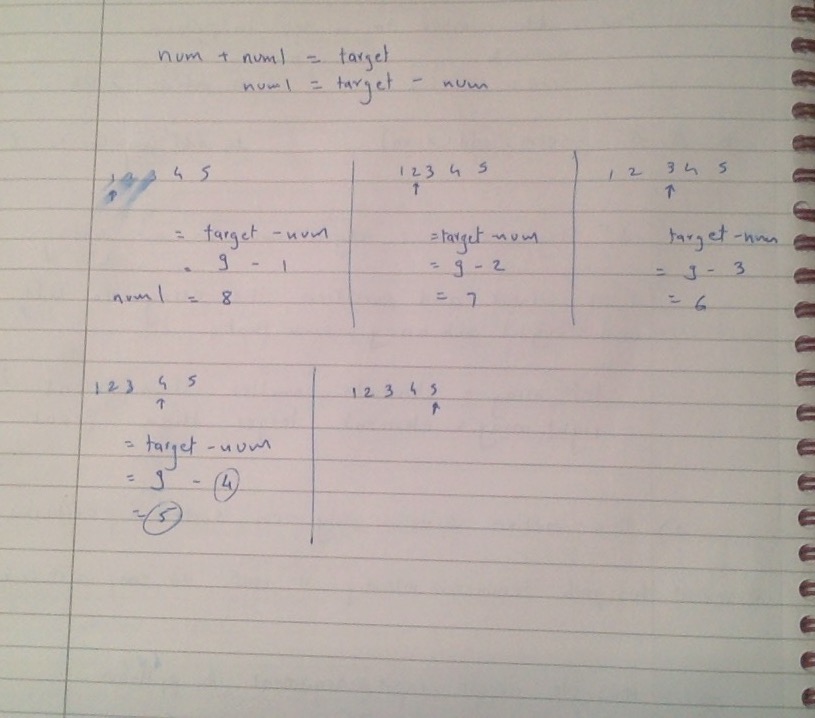 num + num1 = target
num1 = target - num
1 2 3 4 5
↑
= target - num
= 9 - 1
num1 = 8
1 2 3 4 5
↑
= target - num
= 9 - 2
= 7
1 2 3 4 5
↑
target - num
= 9 - 3
= 6
1 2 3 4 5
↑
= target - num
= 9 - 4
= 5
1 2 3 4 5
↑